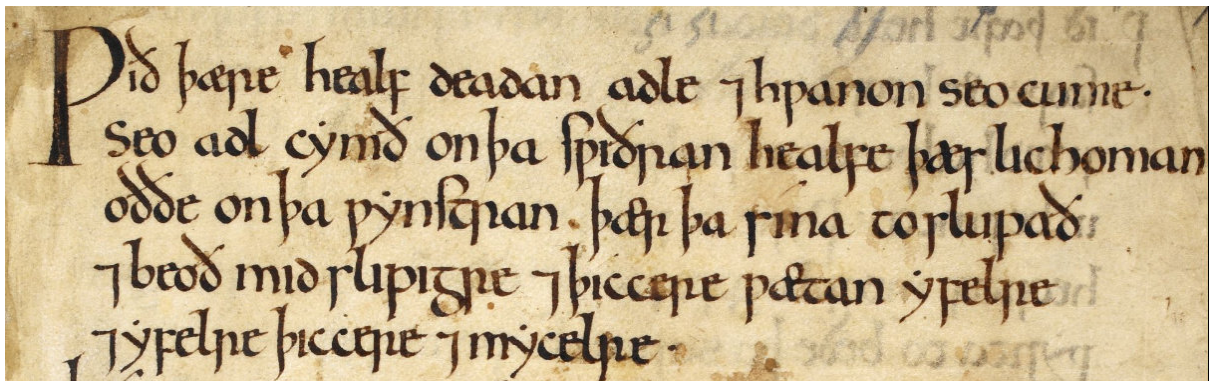 Ƿið þære healf deadan adle ⁊ hƿanon seo cume·
Seo adl cymð on þa sƿiðran healfe þæs lichoman
oððe on þa ƿynstran· þær þa sina toslupað
⁊ beoð mid slipigre ⁊ þiccere ƿætan yfelre
⁊ yfelre þiccere ⁊ mycelre·